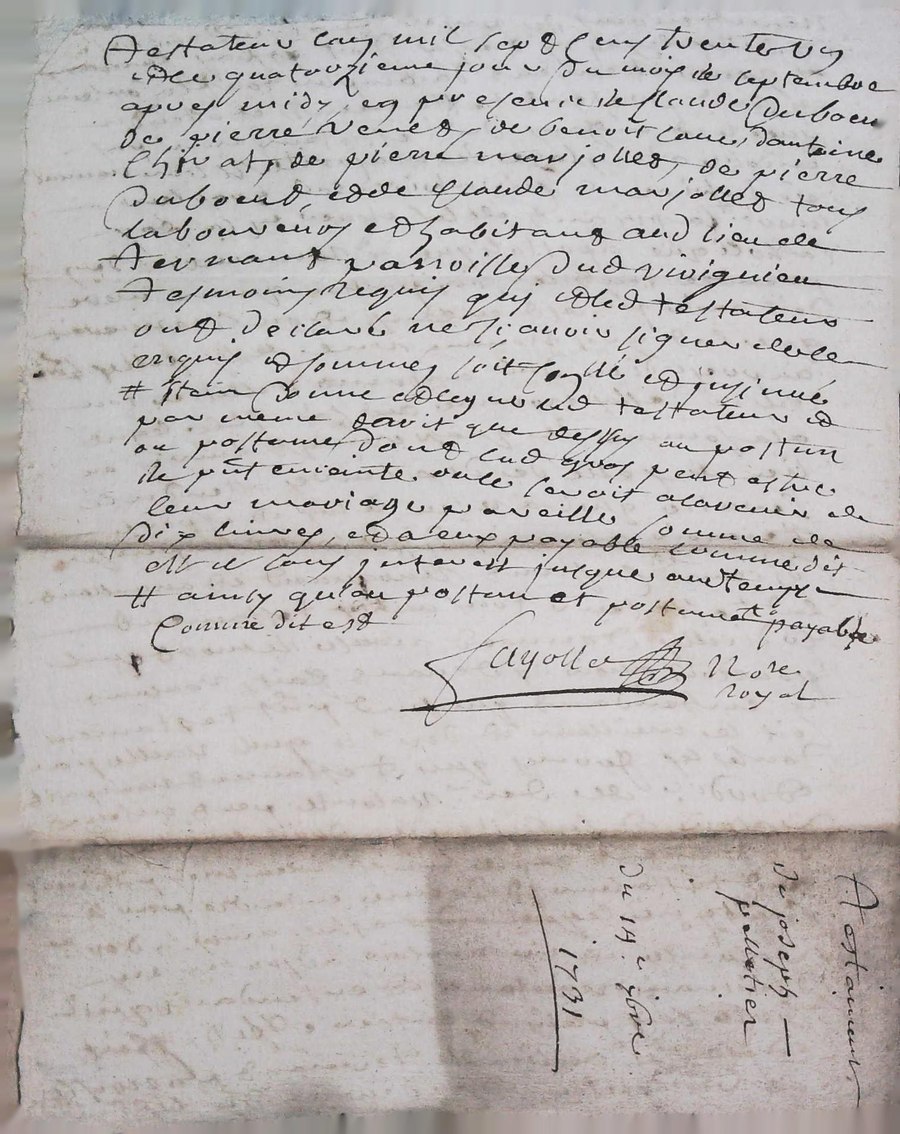 testateur lan mil sept cens trente un
et le quatorzieme jour du mois de septembre
apres midy en presence de Claude Duboeu
de pierre Venet, de benoit dantoine
Chivat, de pierre marjollet, de pierre
Duboeuf, et de Claude marjollet tous
laboureurs et habitans aud lieu de
ternant parroisse dud
tesmoins requis qui et led testateur
ont declaré ne scavoir signer de ce
enquis et sommes soit et insinué
# donne et legue led testateur et
par meme que dessus au postun
ou postume dont lad peut estre
de pnt enciente ou le seroit a lavenir de
leur mariage pareille somme de
dix livres, et a eux payable comme dit
est et sans interest jusque aud temps
# ainsy quau postun et postume payable
Comme dit est
Fayolle Nore
royal
Testament
du joseph
pelletier
du 14e 7bre
1731